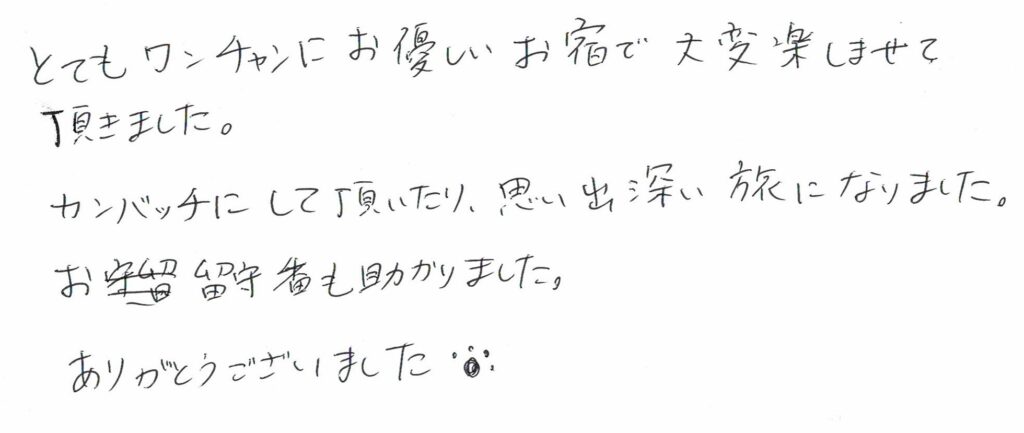 とてもワンチャンにお優しいお宿で大変楽しませて
頂きました。
カンバッチにして頂いたり、思い出深い旅になりました。
お留守番も助かりました。
ありがとうございました